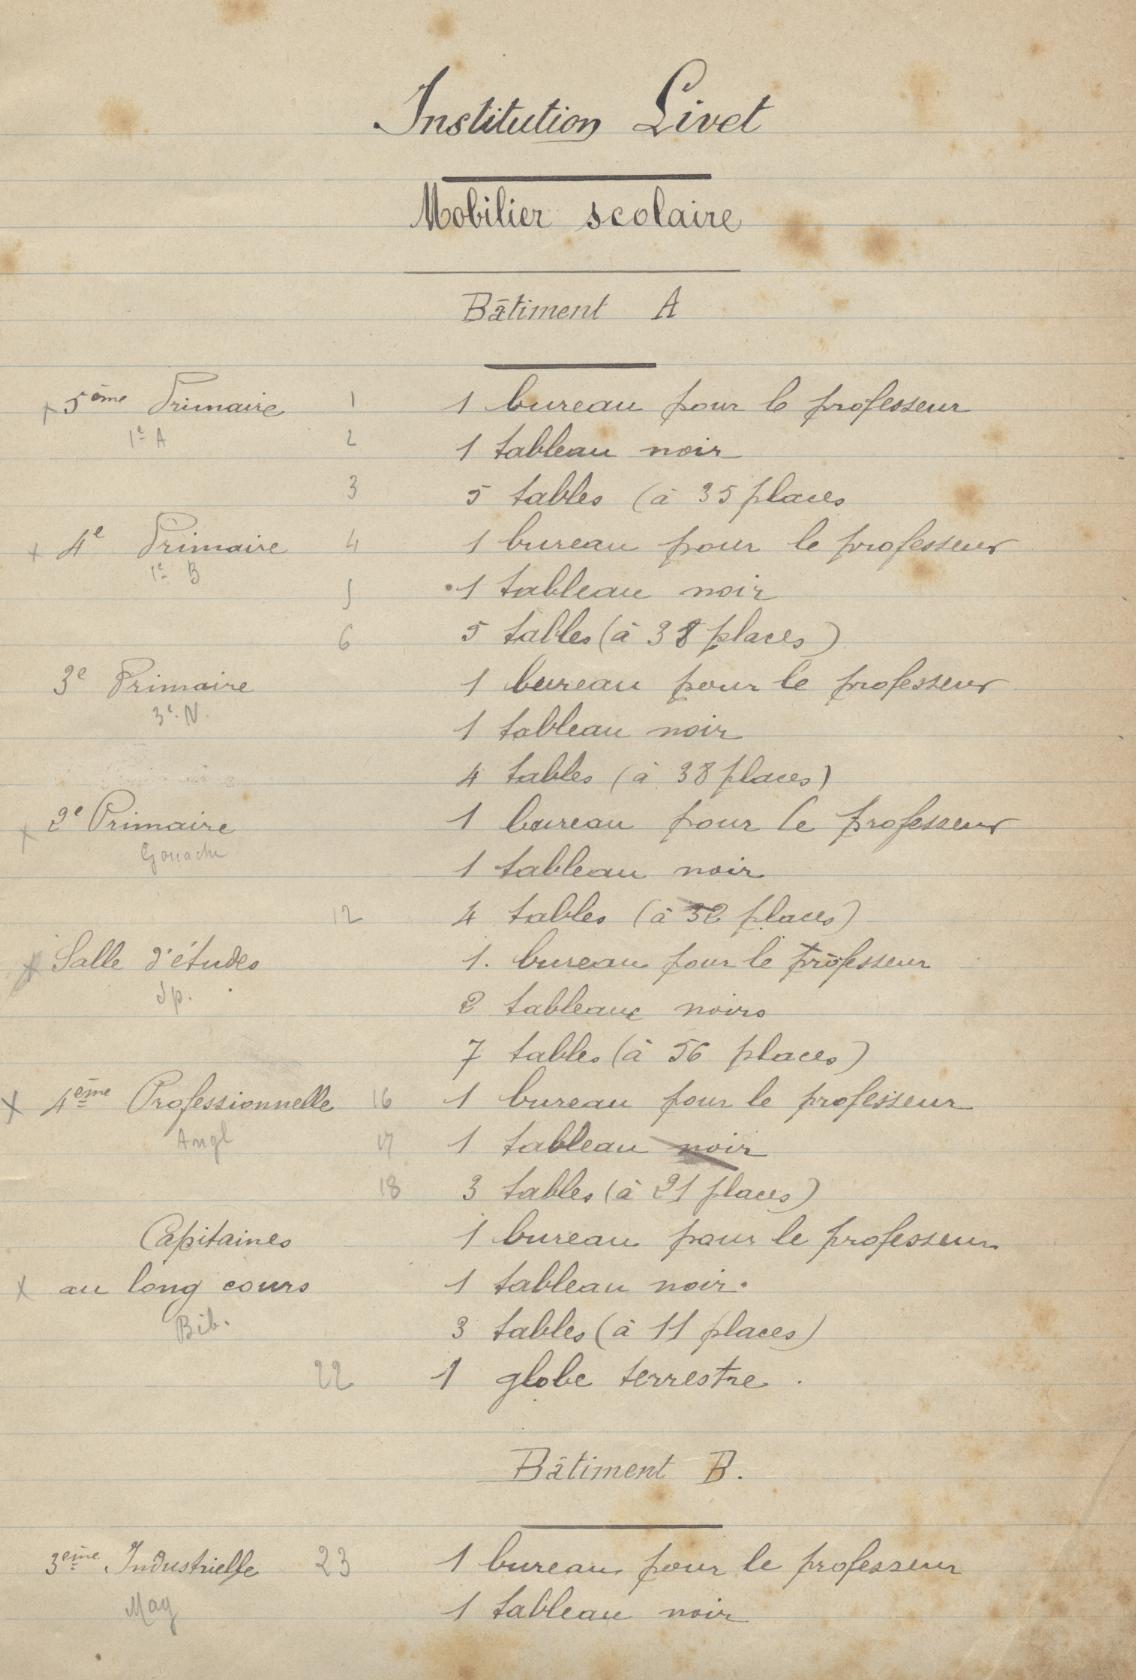 Institution Livet
Mobilier scolaire
Bâtiment A
x 5ème Primaire 1 1 bureau pour le professeur
1e A 2 1 tableau noir
3 5 tables (à 35 places
x 4e Primaire 4 1 bureau pour le professeur
1e B
5 1 tableau noir
6 5 tables (à 38 places)
3e Primaire 1 bureau pour le professeur
3e. N. 1 tableau noir
4 tables (à 38 places)
x 2e Primaire 1 bureau pour le professeur
Gouache 1 tableau noir
12 4 tables (à 32 places)
x Salle d'études 1. bureau pour le professeur
Sp. 2 tableaux noirs
7 tables (à 56 places)
x 4ème Professionnelle 16 1 bureau pour le professeur
Angl 17 1 tableau noir
18 3 tables (à 21 places)
Capitaines 1 bureau pour le professeur
x au long cours 1 tableau noir.
Bib. 3 tables (à 11 places)
22 1 globe terrestre.
Bâtiment B.
3eme Industrielle 23 1 bureau pour le professeur
Mag 1 tableau noir